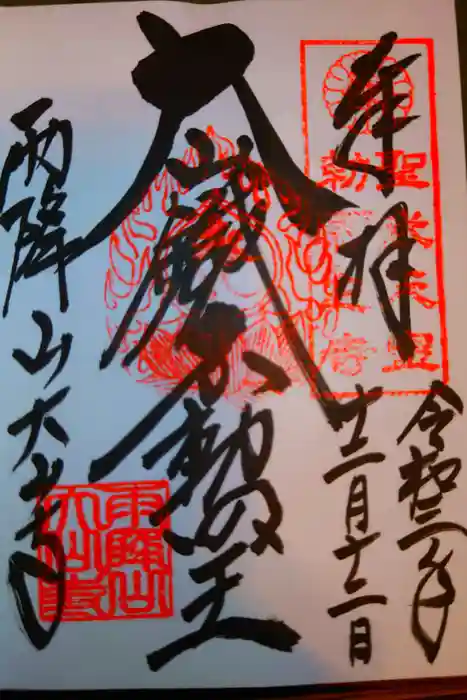 奉拝
聖武天皇
勅願寺
令和三年
十二月十二日
大山不動王
雨降山大山寺
雨降山
大山寺